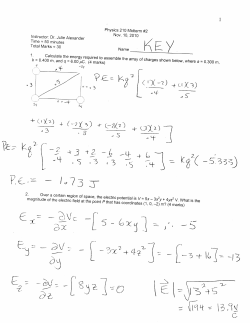 1
Physics 210 Midterm #2
Nov. 10, 2010
Instructor: Dr. Julie Alexander
Time = 50 minutes
Total Marks = 30
Name KEY
1. Calculate the energy required to assemble the array of charges shown below, where a = 0.300 m, b = 0.400 m, and q = 6.00 µC. (4 marks)
P.E = kq² [ (1)(-2)/.4 + (1)(3)/.5
+ (1)(2)/.3 + (-2)(3)/.3 + (-2)(2)/.5 + (3)(2)/.4 ]
PE = kq² [ -2/.4 + 3/.5 + 2/.3 - 6/.3 - 4/.5 + 6/.4 ] = kq² (-5.333)
P.E. = - 1.73 J
2. Over a certain region of space, the electric potential is V = 5x – 3x²y + 4yz² V. What is the magnitude of the electric field at the point P that has coordinates (1, 0, -2) m? (4 marks)
Ex = -∂V/∂x = -[5 - 6xy] = -5
Ey = -∂V/∂y = -[-3x² + 4z²] = -[-3 + 16] = -13
Ez = -∂V/∂z = -[8yz] = 0
|E| = √13² + 5²
= √194 = 13.9 V/C